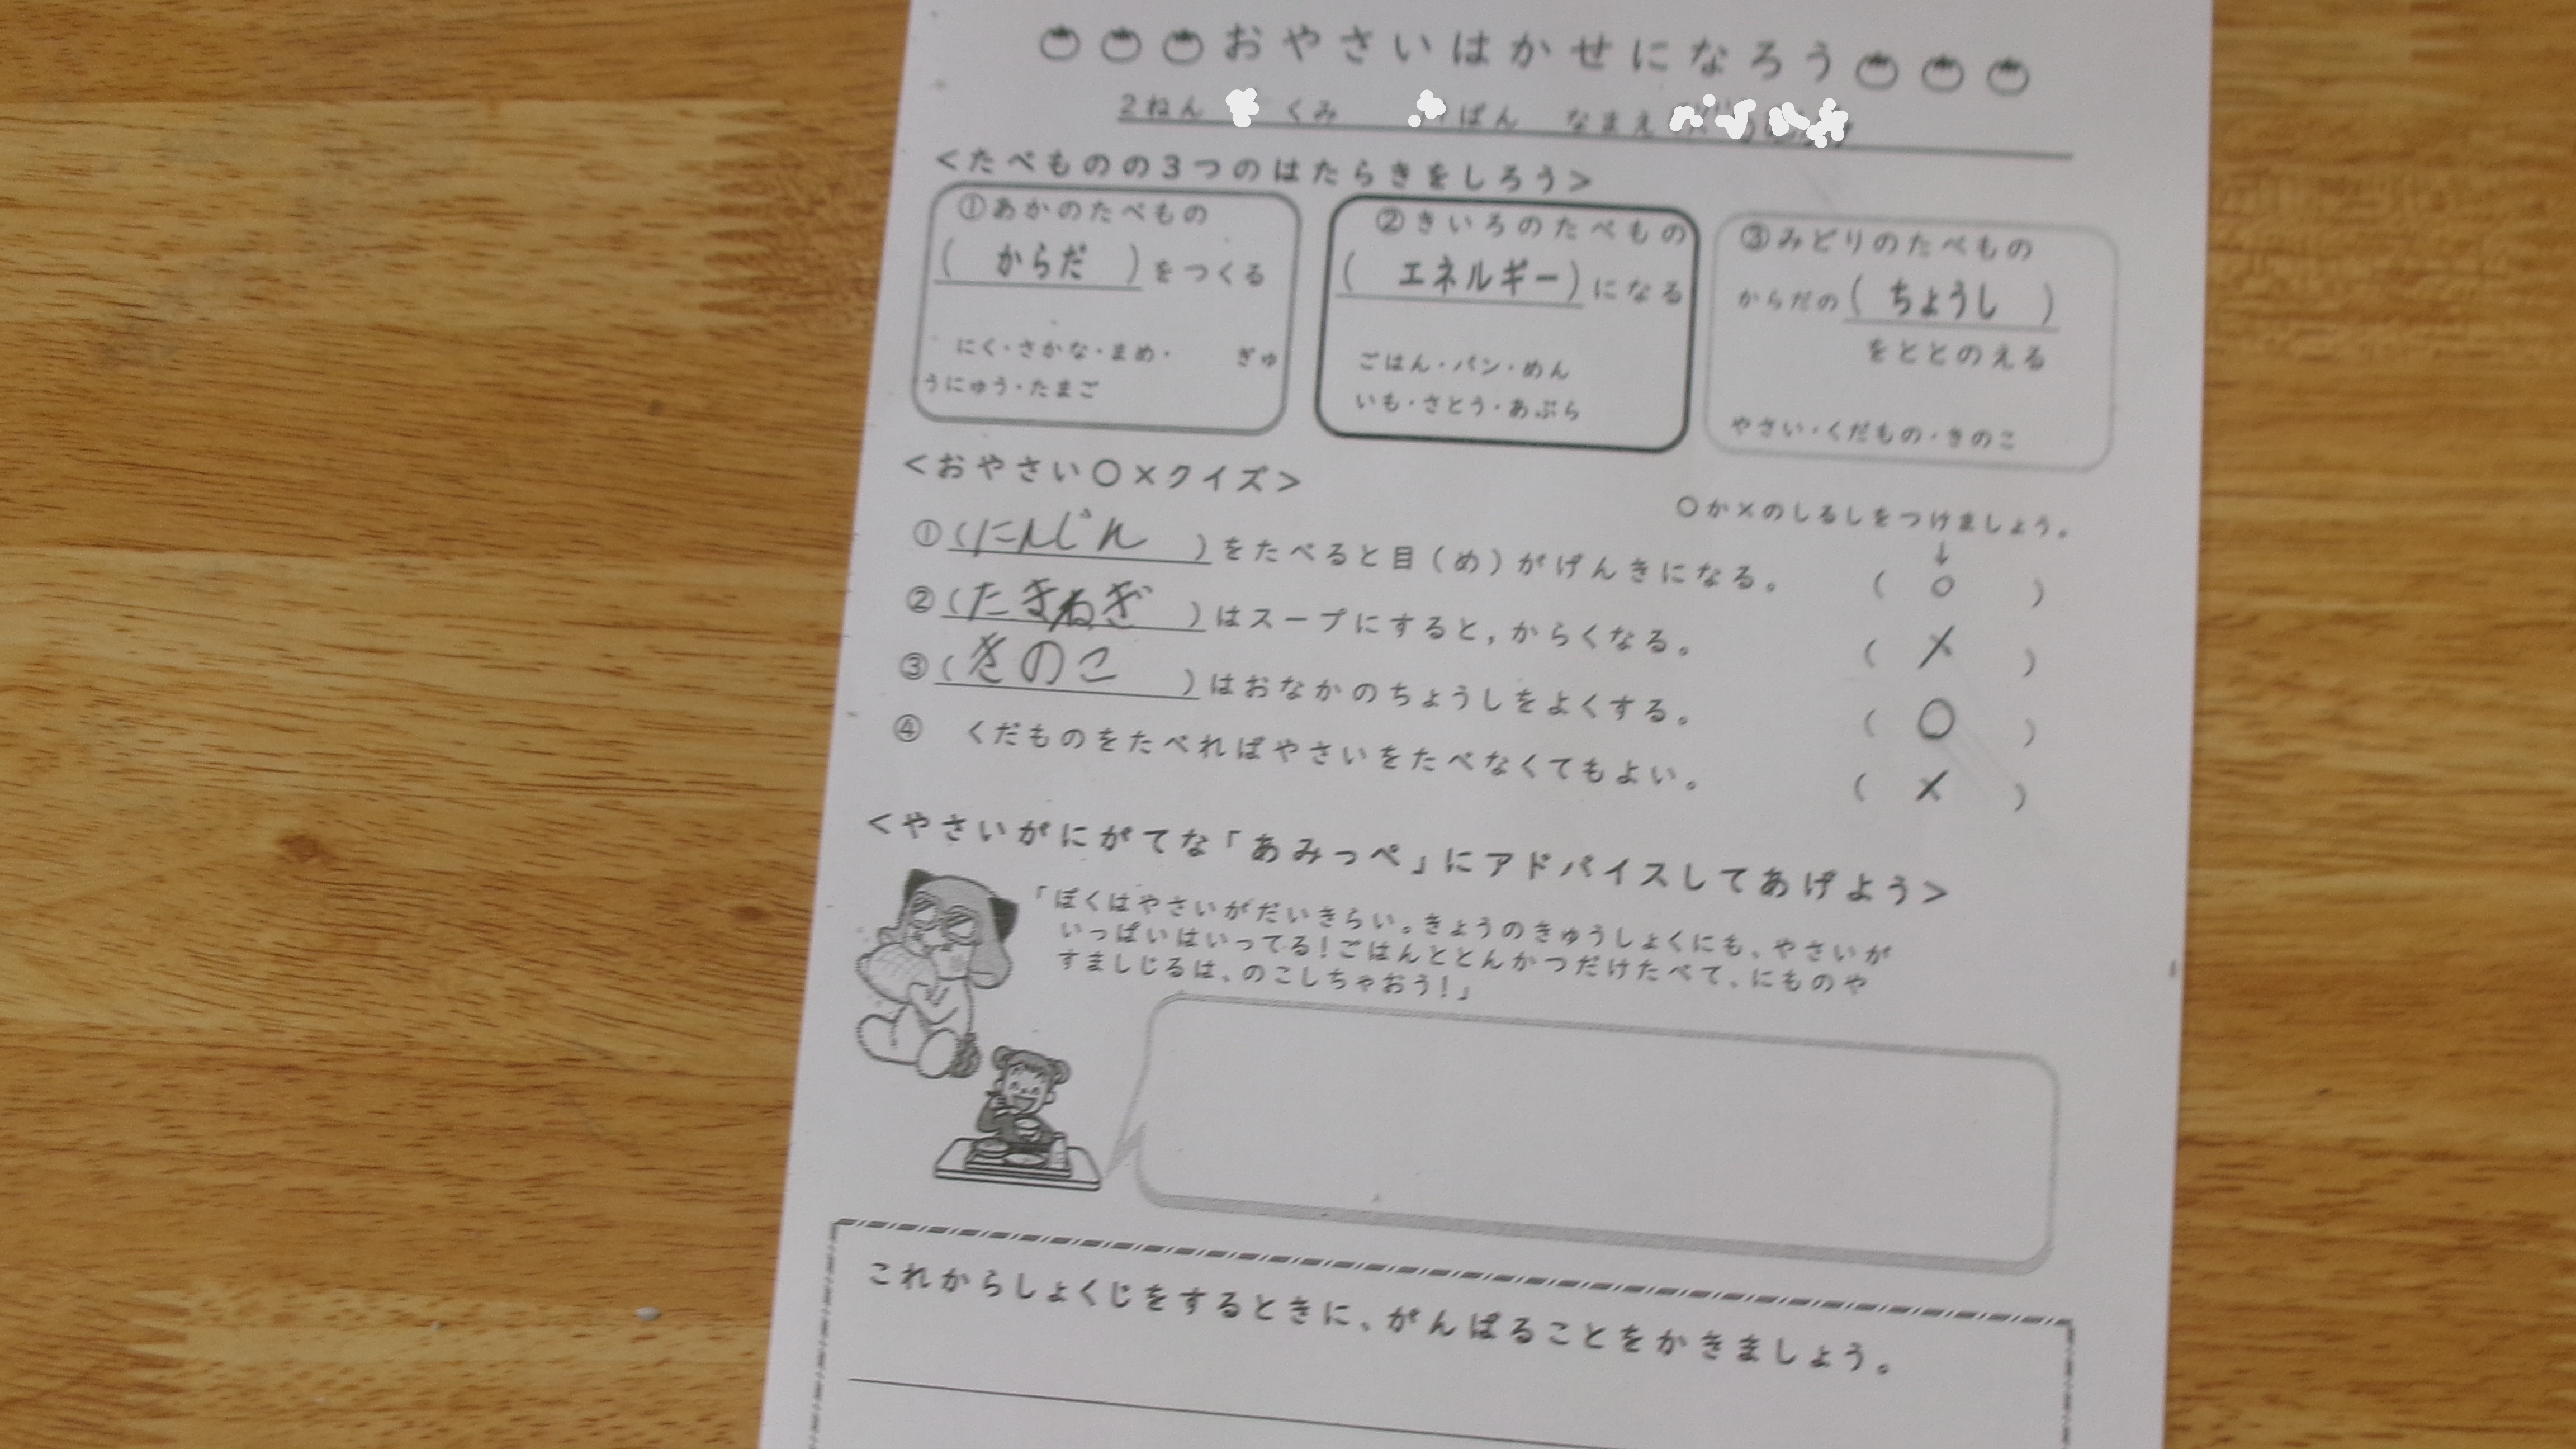 おやさいはかせになろう
2ねん くみ ばん なまえ
<たべものの3つのはたらきをしろう>
①あかのたべもの
( からだ )をつくる
にく・さかな・まめ・ ぎゅ
うにゅう・たまご
②きいろのたべもの
( エネルギー)になる
ごはん・パン・めん
いも・さとう・あぶら
③みどりのたべもの
からだの( ちょうし )
をととのえる
やさい・くだもの・きのこ
<おやさい○×クイズ>
○か×のしるしをつけましょう。
↓
①(にんじん )をたべると目(め)がげんきになる。 ( ○ )
②(たまねぎ )はスープにすると,からくなる。 ( × )
③(きのこ )はおなかのちょうしをよくする。 ( ○ )
④ くだものをたべればやさいをたべなくてもよい。 ( × )
<やさいがにがてな「あみっぺ」にアドバイスしてあげよう>
「ぼくはやさいがだいきらい。きょうのきゅうしょくにも、やさいが
いっぱいはいってる!ごはんととんかつだけたべて、にものや
すましじるは、のこしちゃおう!」
これからしょくじをするときに、がんばることをかきましょう。